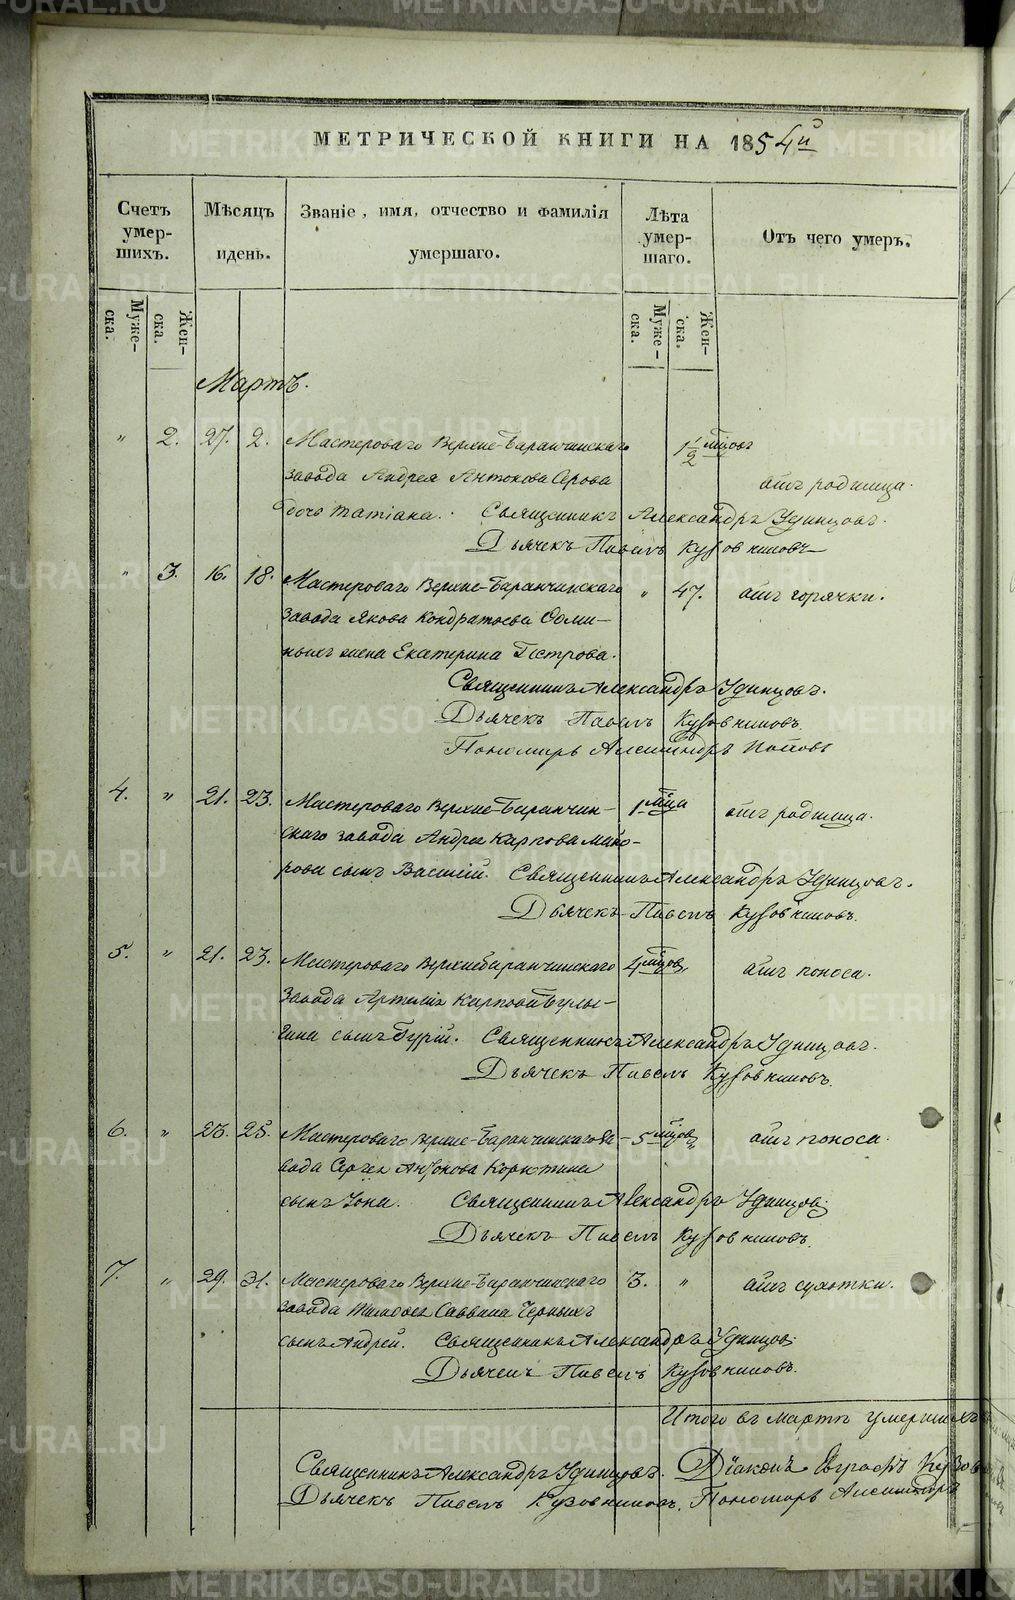 МЕТРИЧЕСКОЙ КНИГИ НА 1854й
Счетъ умер- шихъ.
Мѣсяцъ идень.
Званіе, имя, отчество и фамилія умершаго.
Лѣта умер- шаго.
Отъ чего умеръ.
Муже- ска.
Жен- ска.
Муже- ска.
Жен- ска.
Мартъ.
" 2. 27. 2. Мастероваго Верхне-Баранчинскаго 1 1/2 мцовъ
завода Андрея Антонова Серова отъ родимца.
дочь Татіана. Священникъ Александръ Удинцовъ.
Дьячекъ Павелъ Кузовниковъ
" 3. 16. 18. Мастероваго Верхне-Баранчинскаго " 47. отъ горячки.
завода Якова Кондратьева Ѳоми-
ныхъ жена Екатерина Петрова.
Священникъ Александръ Удинцовъ.
Дьячекъ Павелъ Кузовниковъ.
Пономарь Александръ Поповъ
4. " 21. 23. Мастероваго Верхне-Баранчин- 1 мца отъ родимца.
скаго завода Андрея Карпова Майо-
рова сынъ Василій. Священникъ Александръ Удинцовъ.
Дьячекъ Павелъ Кузовниковъ.
5. " 21. 23. Мастероваго Верхнебаранчинскаго 4 мцов, отъ поноса.
завода Карпова
сынъ Гурій. Священникъ Александръ Удинцовъ.
Дьячекъ Павелъ Кузовниковъ.
6. " 23. 25. Мастероваго Верхне-Баранчинскаго За- 5 мцов, отъ поноса.
вода Сергея Корютина
сынъ Іона. Священникъ Александръ Удинцовъ
Дьячекъ Павелъ Кузовниковъ.
7. " 29. 31. Мастероваго Верхне-Баранчинскаго 3. " отъ сухотки.
завода Тимофея Саввина Черныхъ
сынъ Андрей. Священникъ Александръ Удинцовъ
Дьячекъ Павелъ Кузовниковъ.
Итого въ мартѣ умершихъ
Священникъ Александръ Удинцовъ. Діаконъ Евграфъ
Дьячекъ Павелъ Кузовниковъ. Пономарь Александръ
METRIKI.GASO-URAL.RU